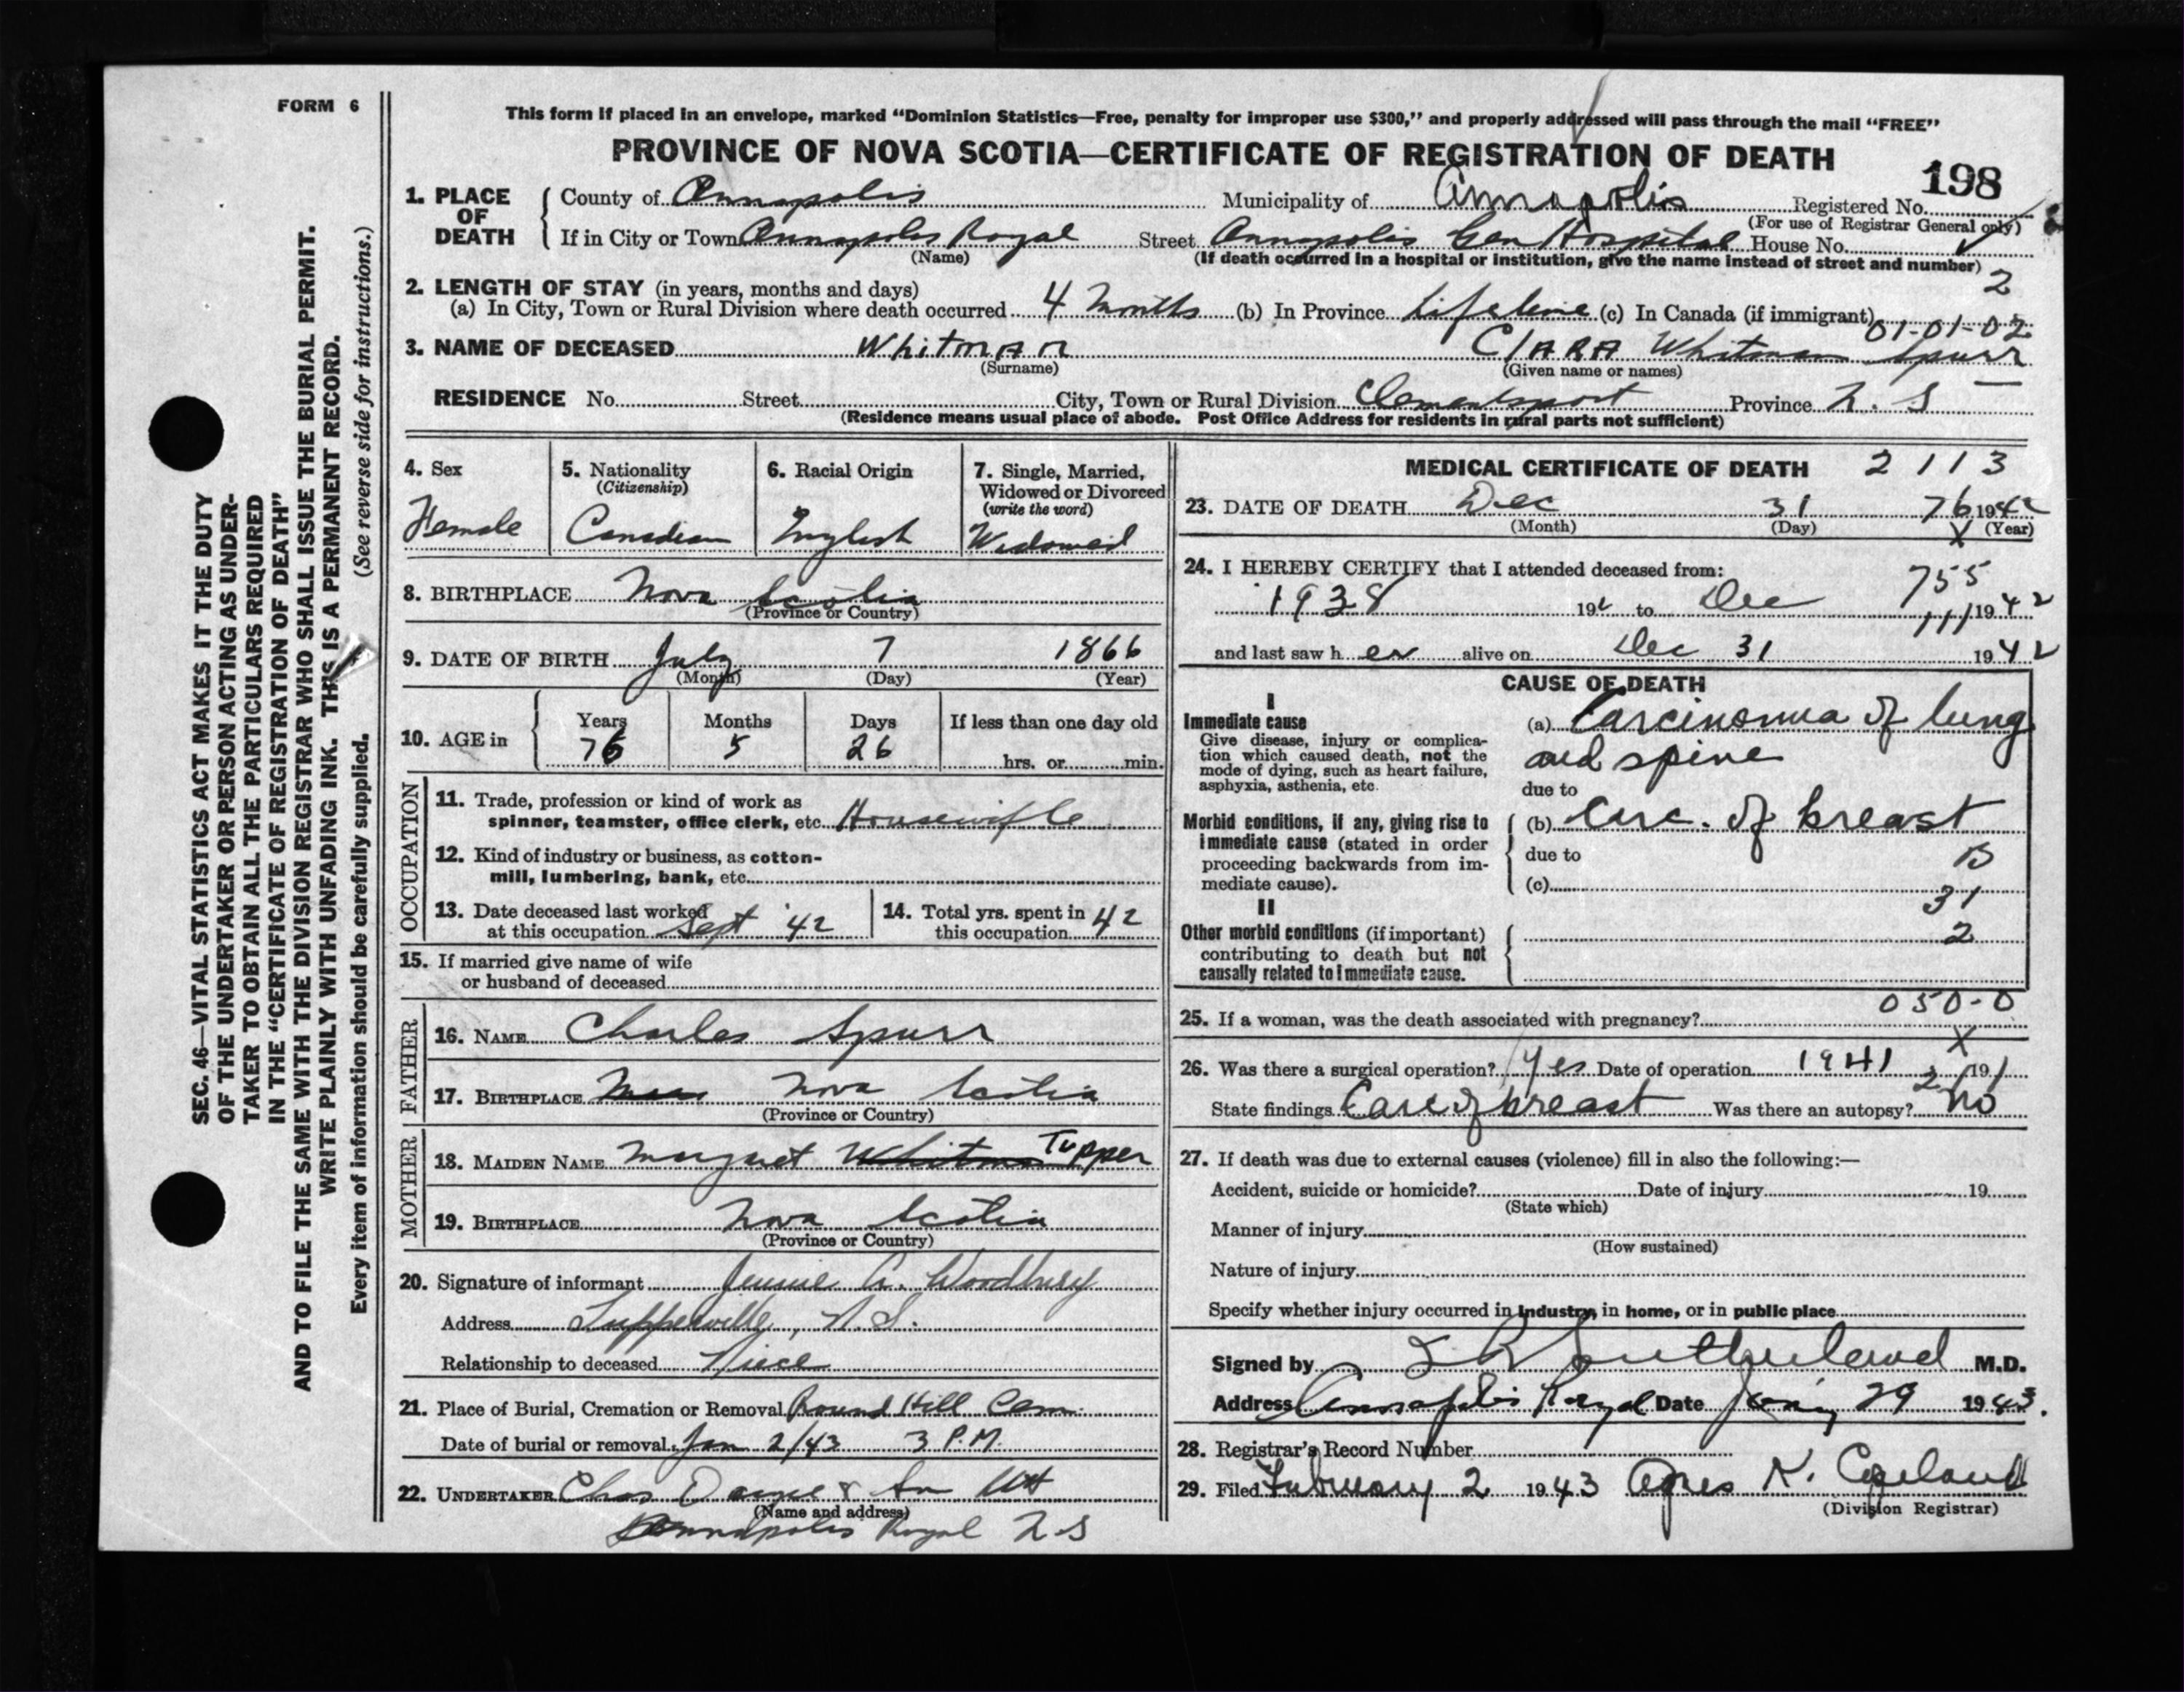 FORM 6
This form if placed in an envelope, marked “Dominion Statistics—Free, penalty for improper use $300,” and properly addressed will pass through the mail “FREE”
PROVINCE OF NOVA SCOTIA—CERTIFICATE OF REGISTRATION OF DEATH
198
1. PLACE OF DEATH { County of Annapolis Municipality of Annapolis Registered No.
(For use of Registrar General only)
If in City or Town Annapolis Royal Street Annapolis Gen Hospital House No.
(Name) (If death occurred in a hospital or institution, give the name instead of street and number)
2
2. LENGTH OF STAY (in years, months and days)
(a) In City, Town or Rural Division where death occurred 4 Months (b) In Province Lifetime (c) In Canada (if immigrant)
01-01-02
3. NAME OF DECEASED Whitman Clara Whitman Spurr
(Surname) (Given name or names)
RESIDENCE No. Street City, Town or Rural Division Clementsport Province N. S
(Residence means usual place of abode. Post Office Address for residents in rural parts not sufficient)
4. Sex
Female
5. Nationality
(Citizenship)
Canadian
6. Racial Origin
English
7. Single, Married, Widowed or Divorced
(write the word)
Widowed
8. BIRTHPLACE Nova Scotia
(Province or Country)
9. DATE OF BIRTH July 7 1866
(Month) (Day) (Year)
10. AGE in { Years Months Days If less than one day old
76 5 26 hrs. or min.
OCCUPATION
11. Trade, profession or kind of work as
spinner, teamster, office clerk, etc. Housewifle
12. Kind of industry or business, as cotton-
mill, lumbering, bank, etc.
13. Date deceased last worked
at this occupation Sept '42
14. Total yrs. spent in
this occupation 42
15. If married give name of wife
or husband of deceased
FATHER
16. NAME Charles Spurr
17. BIRTHPLACE Nova Scotia
(Province or Country)
MOTHER
18. MAIDEN NAME Margaret Whitman Tupper
19. BIRTHPLACE Nova Scotia
(Province or Country)
20. Signature of informant Jennie A. Woodbury
Address Tupperville, N.S.
Relationship to deceased Niece
21. Place of Burial, Cremation or Removal Round Hill Cem
Date of burial or removal Jan 2/43 3 P.M.
22. UNDERTAKER Chas &
(Name and address)
Annapolis Royal N S
MEDICAL CERTIFICATE OF DEATH 2 1 1 3
23. DATE OF DEATH Dec 31 76 1942
(Month) (Day) X (Year)
24. I HEREBY CERTIFY that I attended deceased from:
755
1938 19 to Dec 111 1942
and last saw her alive on Dec 31 1942
CAUSE OF DEATH
I
Immediate cause
Give disease, injury or complica-
tion which caused death, not the
mode of dying, such as heart failure,
asphyxia, asthenia, etc.
(a) Carcinomua of lung
and spine
due to
Morbid conditions, if any, giving rise to
immediate cause (stated in order
proceeding backwards from im-
mediate cause).
(b) Carc. of breast
due to B
(c)
31
II
Other morbid conditions (if important)
contributing to death but not
causally related to immediate cause.
2
050-0
25. If a woman, was the death associated with pregnancy?
X
26. Was there a surgical operation? Yes Date of operation 1941 19
State findings Carc of breast Was there an autopsy? No
27. If death was due to external causes (violence) fill in also the following:—
Accident, suicide or homicide? Date of injury 19
(State which)
Manner of injury
(How sustained)
Nature of injury
Specify whether injury occurred in industry, in home, or in public place
Signed by L R Sutherland M.D.
Address Annapolis Royal Date Jan'y 29 1943.
28. Registrar's Record Number
29. Filed February 2 1943 Agnes K. Copeland
(Division Registrar)
SEC. 46—VITAL STATISTICS ACT MAKES IT THE DUTY
OF THE UNDERTAKER OR PERSON ACTING AS UNDER-
TAKER TO OBTAIN ALL THE PARTICULARS REQUIRED
IN THE “CERTIFICATE OF REGISTRATION OF DEATH”
AND TO FILE THE SAME WITH THE DIVISION REGISTRAR WHO SHALL ISSUE THE BURIAL PERMIT.
WRITE PLAINLY WITH UNFADING INK. THIS IS A PERMANENT RECORD.
Every item of information should be carefully supplied. (See reverse side for instructions.)